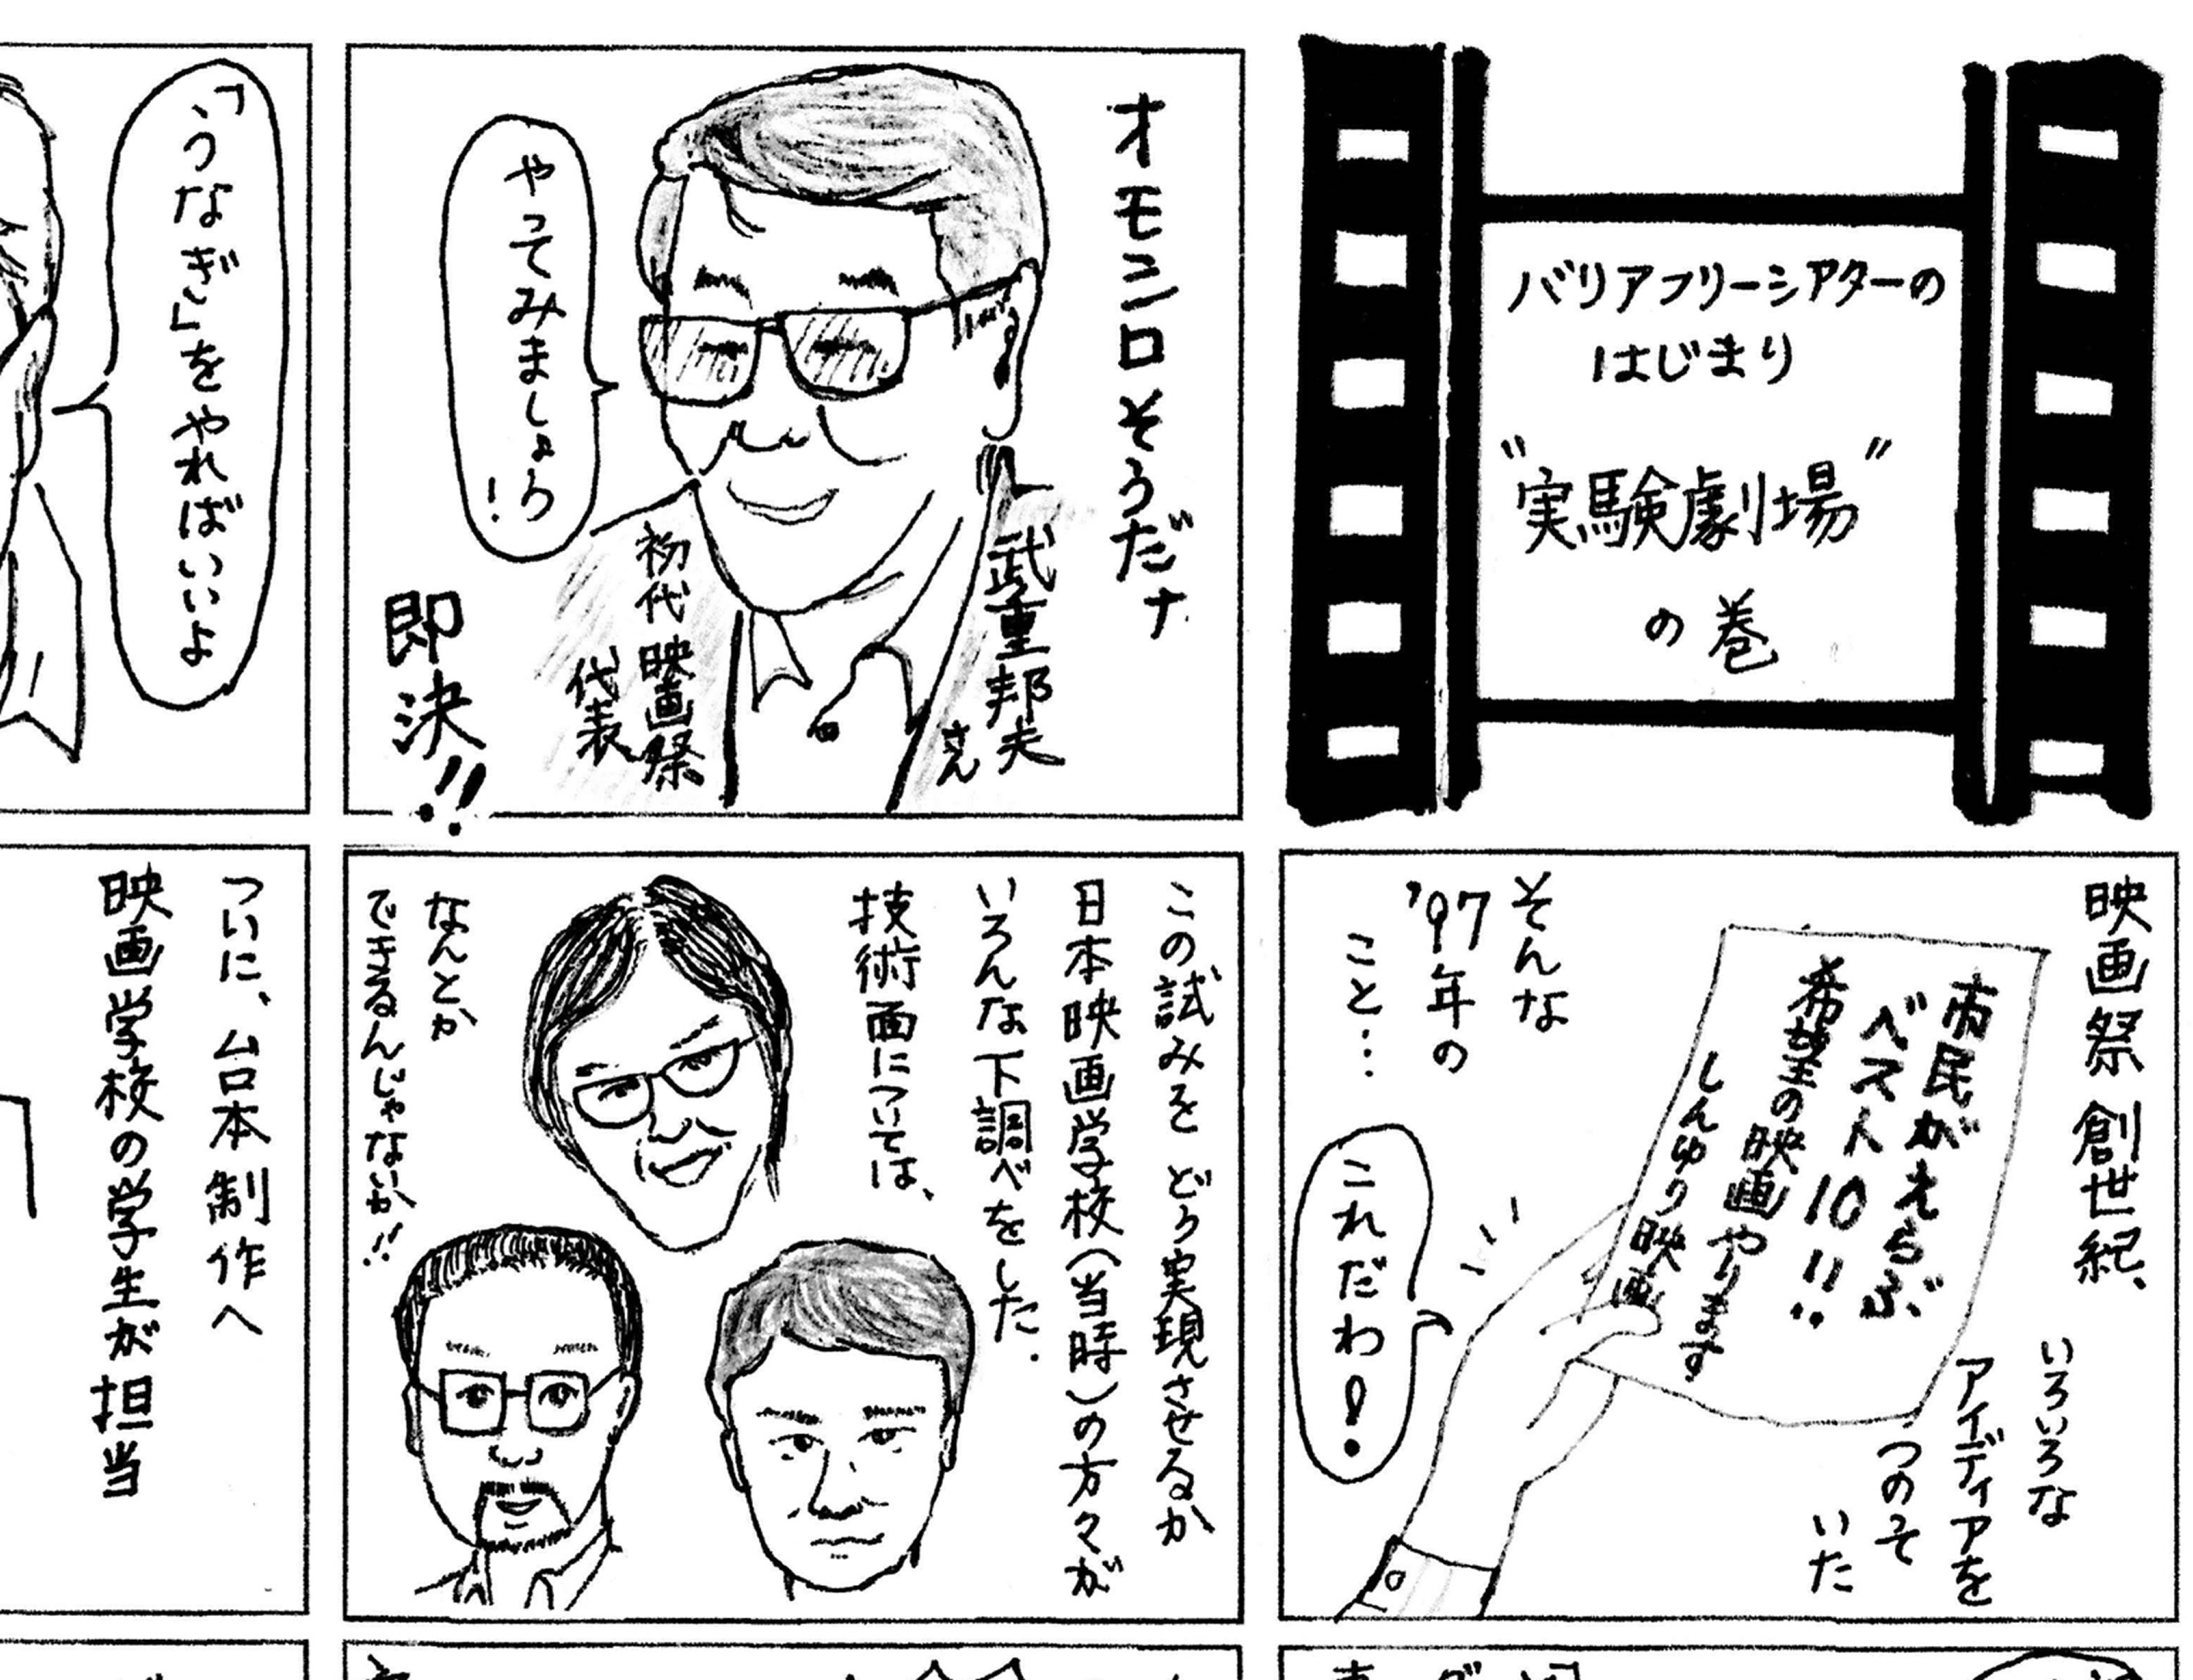 バリアフリーシアターの
はじまり
"実験劇場"
の巻
映画祭 創世紀、
いろいろな
アイディアを
つのって
いた
市民がえらぶ
ベスト10!!
希望の映画やります
しんゆり映画
そんな
'97年の
こと…
これだわ!
オモシロそうだナ
武重邦夫
さん
初代 映画祭
代表
やってみましょう!
即決!!
この試みを どう実現させるか
日本映画学校(当時)の方々が
いろんな下調べをした.
技術面については、
なんとか
できるんじゃないか!!
「うなぎ」をやればいいよ
ついに、台本制作へ
映画学校の学生が担当